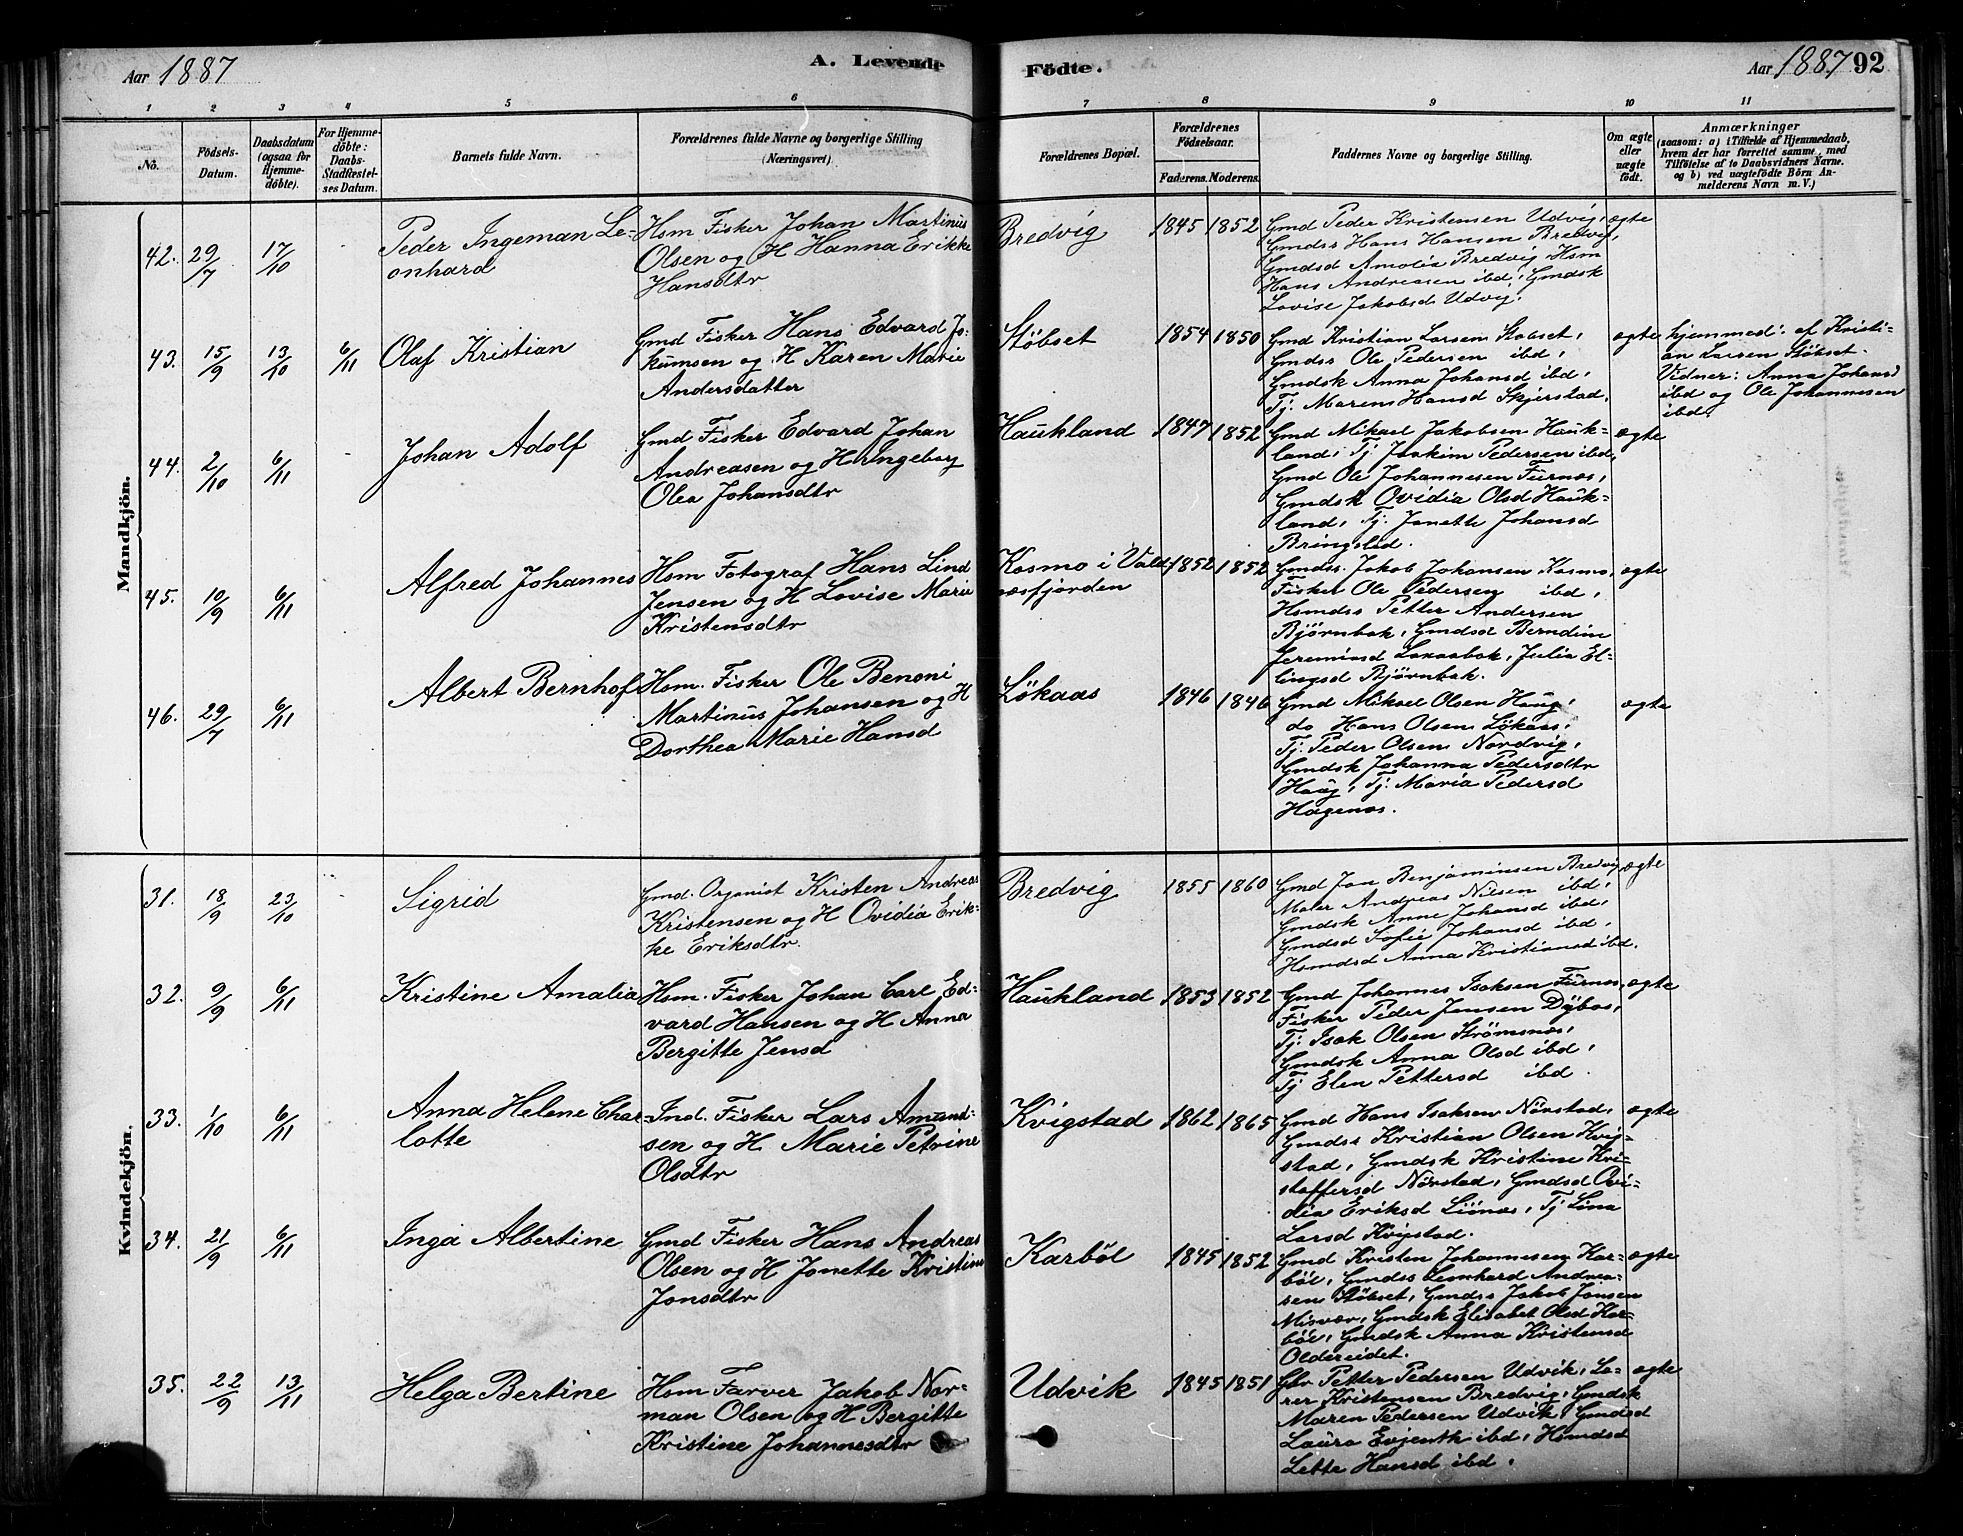 Aar 1887
A. Levende
Födte.
Aar 1887 92
1 2 3 4 5 6 7 8 9 10 11
No.
Födsels-
Datum.
Daabsdatum
(ogsaa for
Hjemme-
döbte).
For Hjemme-
döbte:
Daabs-
Stadfæstel-
ses Datum.
Barnets fulde Navn.
Forældrenes fulde Navne og borgerlige Stilling
(Næringsvei).
Forældrenes Bopæl.
Forældrenes
Födselsaar.
Faderens. Moderens.
Faddernes Navne og borgerlige Stilling.
Om ægte
eller
uægte
födt.
Anmærkninger
(saasom: a) i Tilfælde af Hjemmedaab,
hvem der har forrettet samme, med
Tilföielse af to Daabsvidners Navne.
og b) ved uægtefödte Börn An-
melderens Navn m. V.)
Mandkjön.
42. 29/7 17/10 -
Peder Ingeman Le-
onhard
Hsm Fisker Johan Martinus
Olsen og H Hanna Erikke
Hansdtr
Bredvig
1845 1852
Gmd Peder Kristensen Udvig,
Gmdss Hans Hansen Bredvig,
Gmdsd Amalia Bredvig Hsm
Hans Andreasen ibd, Gmdsk
Lovise Jakobsd Udvig.
ægte
43. 15/9 13/10 6/11
Olaf Kristian
Gmd Fisker Hans Edvard Jo-
kumsen og H Karen Marie
Andersdatter
Støbset
1854 1850
Gmd Kristian Larsen Støbset,
Gmdss Ole Pedersen ibd,
Gmdsk Anna Johansd ibd,
Tj. Maren Hansd Skjerstad.
ægte
hjemmed: af Kristi-
an Larsen Støbset.
Vidner: Anna Johansd
ibd og Ole Johannesen
ibd.
44. 2/10 6/11 -
Johan Adolf
Gmd Fisker Edvard Johan
Andreasen og H Ingeborg
Olea Johansdtr
Haukland
1847 1852
Gmd Mikael Jakobsen Hauk-
land, Tj Joakim Pedersen ibd,
Gmd Ole Johannesen Furnæs,
Gmdsk Ovidia Olsd Hauk-
land, Tj. Jonette Johansd
Bringslid.
ægte
45. 10/9 6/11
Alfred Johannes
Hsm Fotograf Hans Lind
Jensen og H Lovise Marie
Kristensdtr
Kosmo i Vald-
næsfjorden
1852 1852
Gmdss. Jakob Johansen Kosmo,
Fisker Ole Pedersen ibd,
Hsmdss Petter Andersen
Bjørnbak, Gmdsd Berndine
Jeremiasd Løkaasbak, Julia El-
lingsd Bjørnbak.
ægte
46. 29/7 6/11
Albert Bernhof
Hsm. Fisker Ole Benoni
Martinus Johansen og H
Dorthea Marie Hansd
Løkaas
1846 1846
Gmd Mikael Olsen Haug,
do Hans Olsen Løkaas,
Tj. Peder Olsen Nordvig,
Gmdsk Johanna Pedersdtr
Haug, Tj. Maria Pedersd
Hagenæs.
ægte
Kvindekjön.
31. 18/9 23/10 -
Sigrid
Gmd. Organist Kristen Andreas
Kristensen og H Ovidia Erik-
ke Eriksdtr.
Bredvig
1855 1860
Gmd Jon Benjaminsen Bredvig
Maler Andreas Nilsen ibd,
Gmdsk Anne Johansd ibd,
Gmdsd Sofie Johansd ibd,
Hsmdsd Anna Kristiansd ibd.
ægte
32. 9/9 6/11
Kristine Amalia
Hsm. Fisker Johan Carl Ed-
vard Hansen og H Anna
Bergitte Jensd
Haukland
1853 1852
Gmd Johannes Isaksen Furnæs,
Fisker Peder Jensen Dybos,
Tj: Isak Olsen Strømsnæs,
Gmdsk Anna Olsd ibd,
Tj Elen Pettersd ibd.
ægte
33. 1/10 6/11
Anna Helene Char-
lotte
Ind. Fisker Lars Amund-
sen og H Marie Petrine
Olsdtr
Kvigstad
1862 1865
Gmd Hans Isaksen Nørstad,
Gmdss Kristian Olsen Kvig-
stad, Gmdsk Kristine Kri-
stoffersd Nørstad, Gmdsd Ovi-
dia Eriksd Liünæs, Tj Lina
Larsd Kvigstad.
ægte
34. 21/9 6/11
Inga Albertine
Gmd Fisker Hans Andreas
Olsen og H Jonette Kristine
Jonsdtr
Karbøl
1845 1852
Gmd Kristen Johannesen Kar-
bøl, Gmdss Leonhard Andrea-
sen Støbset, Gmdss Jakob Jonsen
Misvær, Gmdsk Elisabet Olsd Kar-
bøl, Gmdsk Anna Kristensd
Oldereidet.
ægte
35. 22/9 13/11
Helga Bertine
Hsm Farver Jakob Nor-
man Olsen og H Bergitte
Kristine Johannesdtr
Udvik
1845 1851
Petter Pedersen Udvik, Læ-
rer Kristensen Bredvig, Gmdsk
Maren Pedersen Udvik, Gmdsd
Laura Evjenth ibd, Hsmdsd
Lette Hansd ibd.
ægte